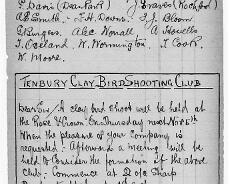 P Davis (Dean Park) J Graves (Rochford)
A E Smith. - F. H. Downs. T J Bloom
G Burgess. Alec Worrall. A Howells
T. Copeland. W. Wormington. T Cook.
W. Moore.
TENBURY CLAY BIRD SHOOTING CLUB
Dear Sir / A clay bird shoot will be held at
the Rose & Crown. On Thursday next Nov 5th
When the pleasure of your Company is
requested. Afterward a meeting will be
held to Consider the formation of the above
Club. Commence at 2 o/c Sharp